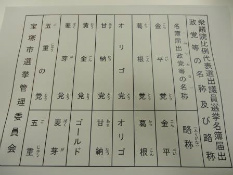 衆議院比例代表選出議員選挙名簿届出
政党等の名称及び略称
名簿届出政党等の名称 略称
金平党 金平
葛根党 葛根
オリゴ党 オリゴ
甘納党 甘納
黄金党 ゴールド
麦芽党 麦芽
五重の党 五重
宝塚市選挙管理委員会